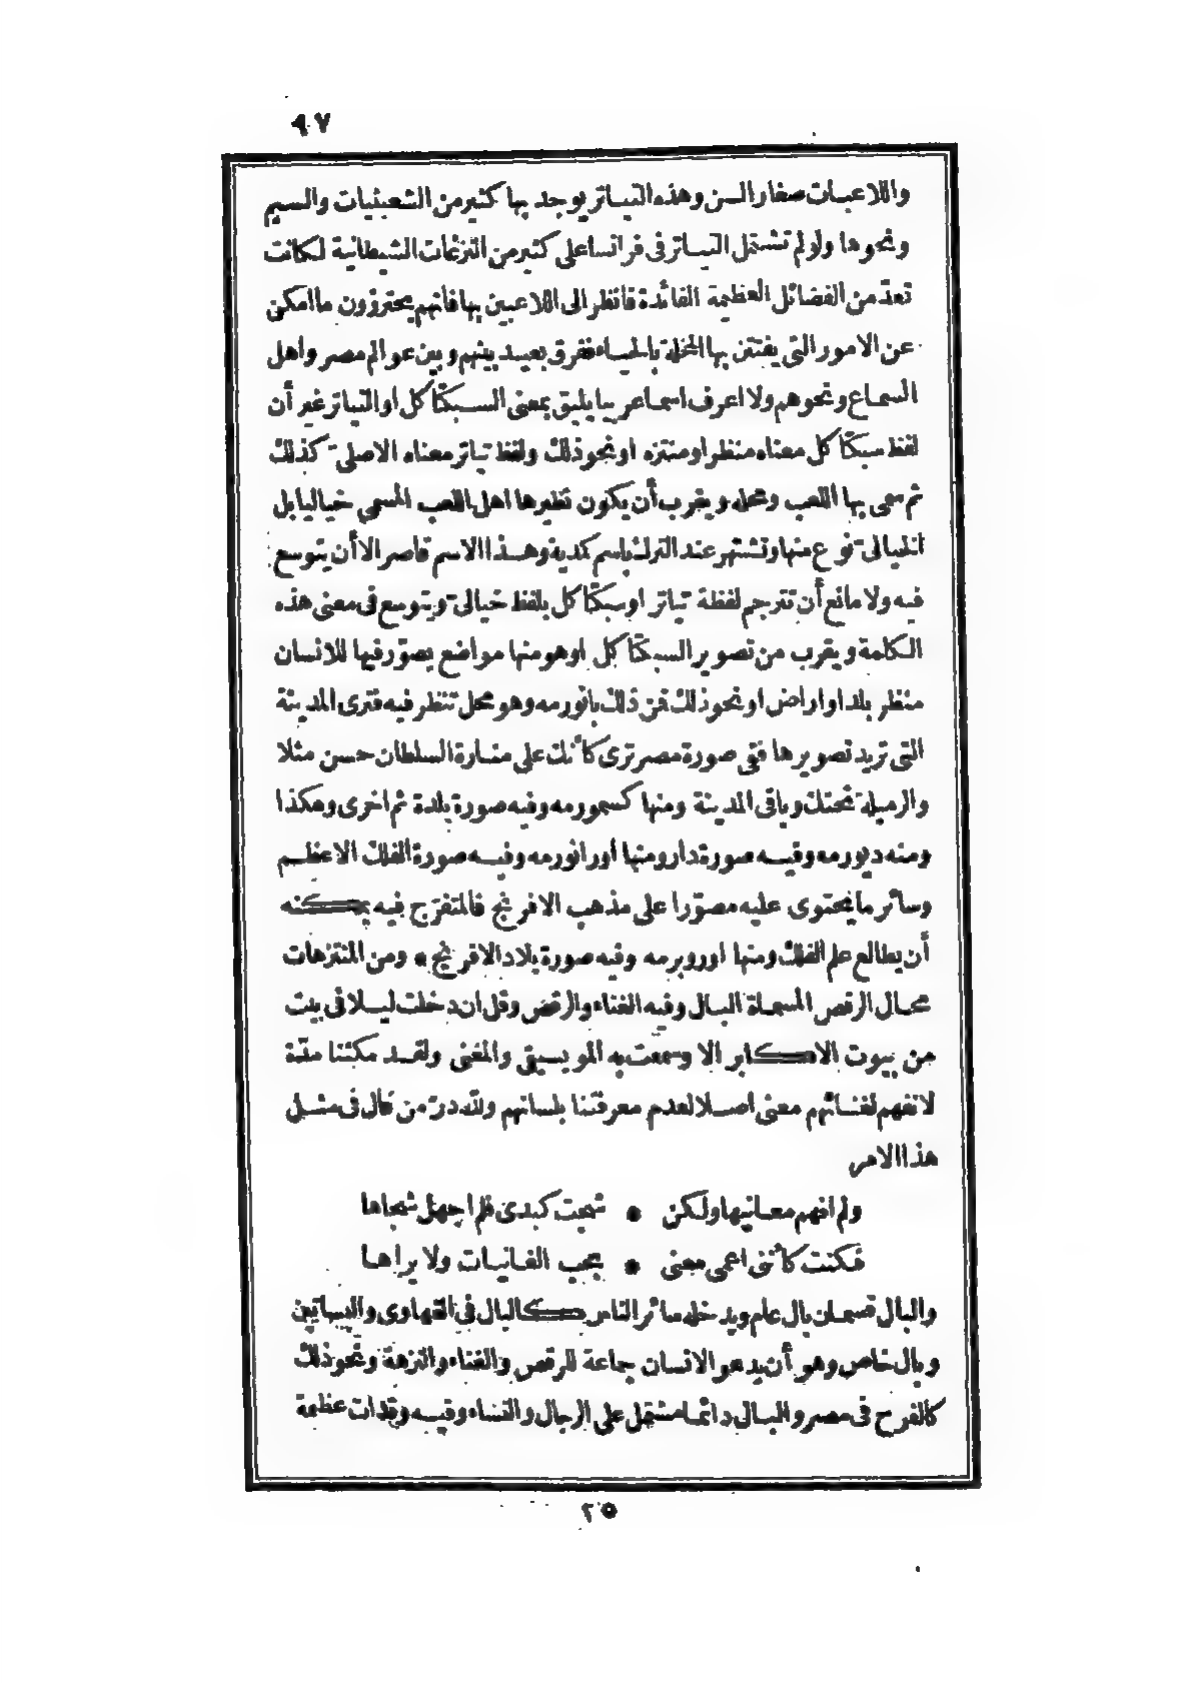 ٩٧
واللاعبات صغار السن وهذه التياتر يوجد بها كثير من الشعبثيات والسيم
ونحوها ولو لم تشتمل التياتر فى فرانسا على كثير من النزغات الشيطانية لكانت
تعدّ من الفضائل العظيمة الفائدة فانظر الى اللاعبين بها فانهم يحترزون ما امكن
عن الامور التى يفتتن بها المخلة بالحياء ففرق بعيد بينهم وبين عوالم مصر واهل
السماع ونحوهم ولا اعرف اسما عربيا يليق بمعنى السبكتاكل او التياتر غير أن
لفظ سبكتاكل معناه منظر او منتزه او نحو ذلك ولفظ تياتر معناه الاصلى كذلك
ثم سمى بها اللعب ومحله ويقرب أن يكون نظيرها اهل اللعب المسمى خياليا بل
الخيالى نوع منها وتشتهر عند الترك باسم كمدية وهذا الاسم قاصر الا أن يتوسع
فيه ولا مانع أن تترجم لفظة تياتر او سبكتاكل بلفظ خيالى ويتوسع فى معنى هذه
الكلمة ويقرب من تصوير السبكتاكل او هو منها مواضع يصوّر فيها للانسان
منظر بلد او اراض او نحو ذلك فمن ذلك بانورمه وهو محل تنظر فيه فترى المدينة
التى تريد تصويرها ففى صورة مصر ترى كأنك على منارة السلطان حسن مثلا
والرميلة تحتك وباقى المدينة ومنها كسمورمه وفيه صورة بلدة ثم اخرى وهكذا
ومنه ديورمه وفيه صورة دار ومنها أورانورمه وفيه صورة الفلك الاعظم
وسائر ما يحتوى عليه مصوّرا على مذهب الافرنج فالمتفرّج فيه يمكنه
أن يطالع علم الفلك ومنها اوروبرمه وفيه صورة بلاد الافرنج * ومن المنتزهات
محال الرقص المسماة البال وفيه الغناء والرقص وقل ان دخلت ليلا فى بيت
من بيوت الاكابر الا وسمعت به المويسيقى والمغنى ولقد مكثنا مدّة
لا نفهم لغنائهم معنى اصلا لعدم معرفتنا بلسانهم ولله درّ من قال فى مثل
هذا الامر
ولم افهم معانيها ولكن * شجت كبدى فلم اجهل شجاها
فكنت كأننى اعمى معنى * بحب الغانيات ولا يراها
والبال قسمان بال عام ويدخله سائر الناس كالبال فى القهاوى والبساتين
وبال خاص وهو أن يدعو الانسان جماعة للرقص والغناء والنزهة ونحو ذلك
كالفرح فى مصر والبال دائما مشتمل على الرجال والنساء وفيه وقدات عظيمة
٢٥